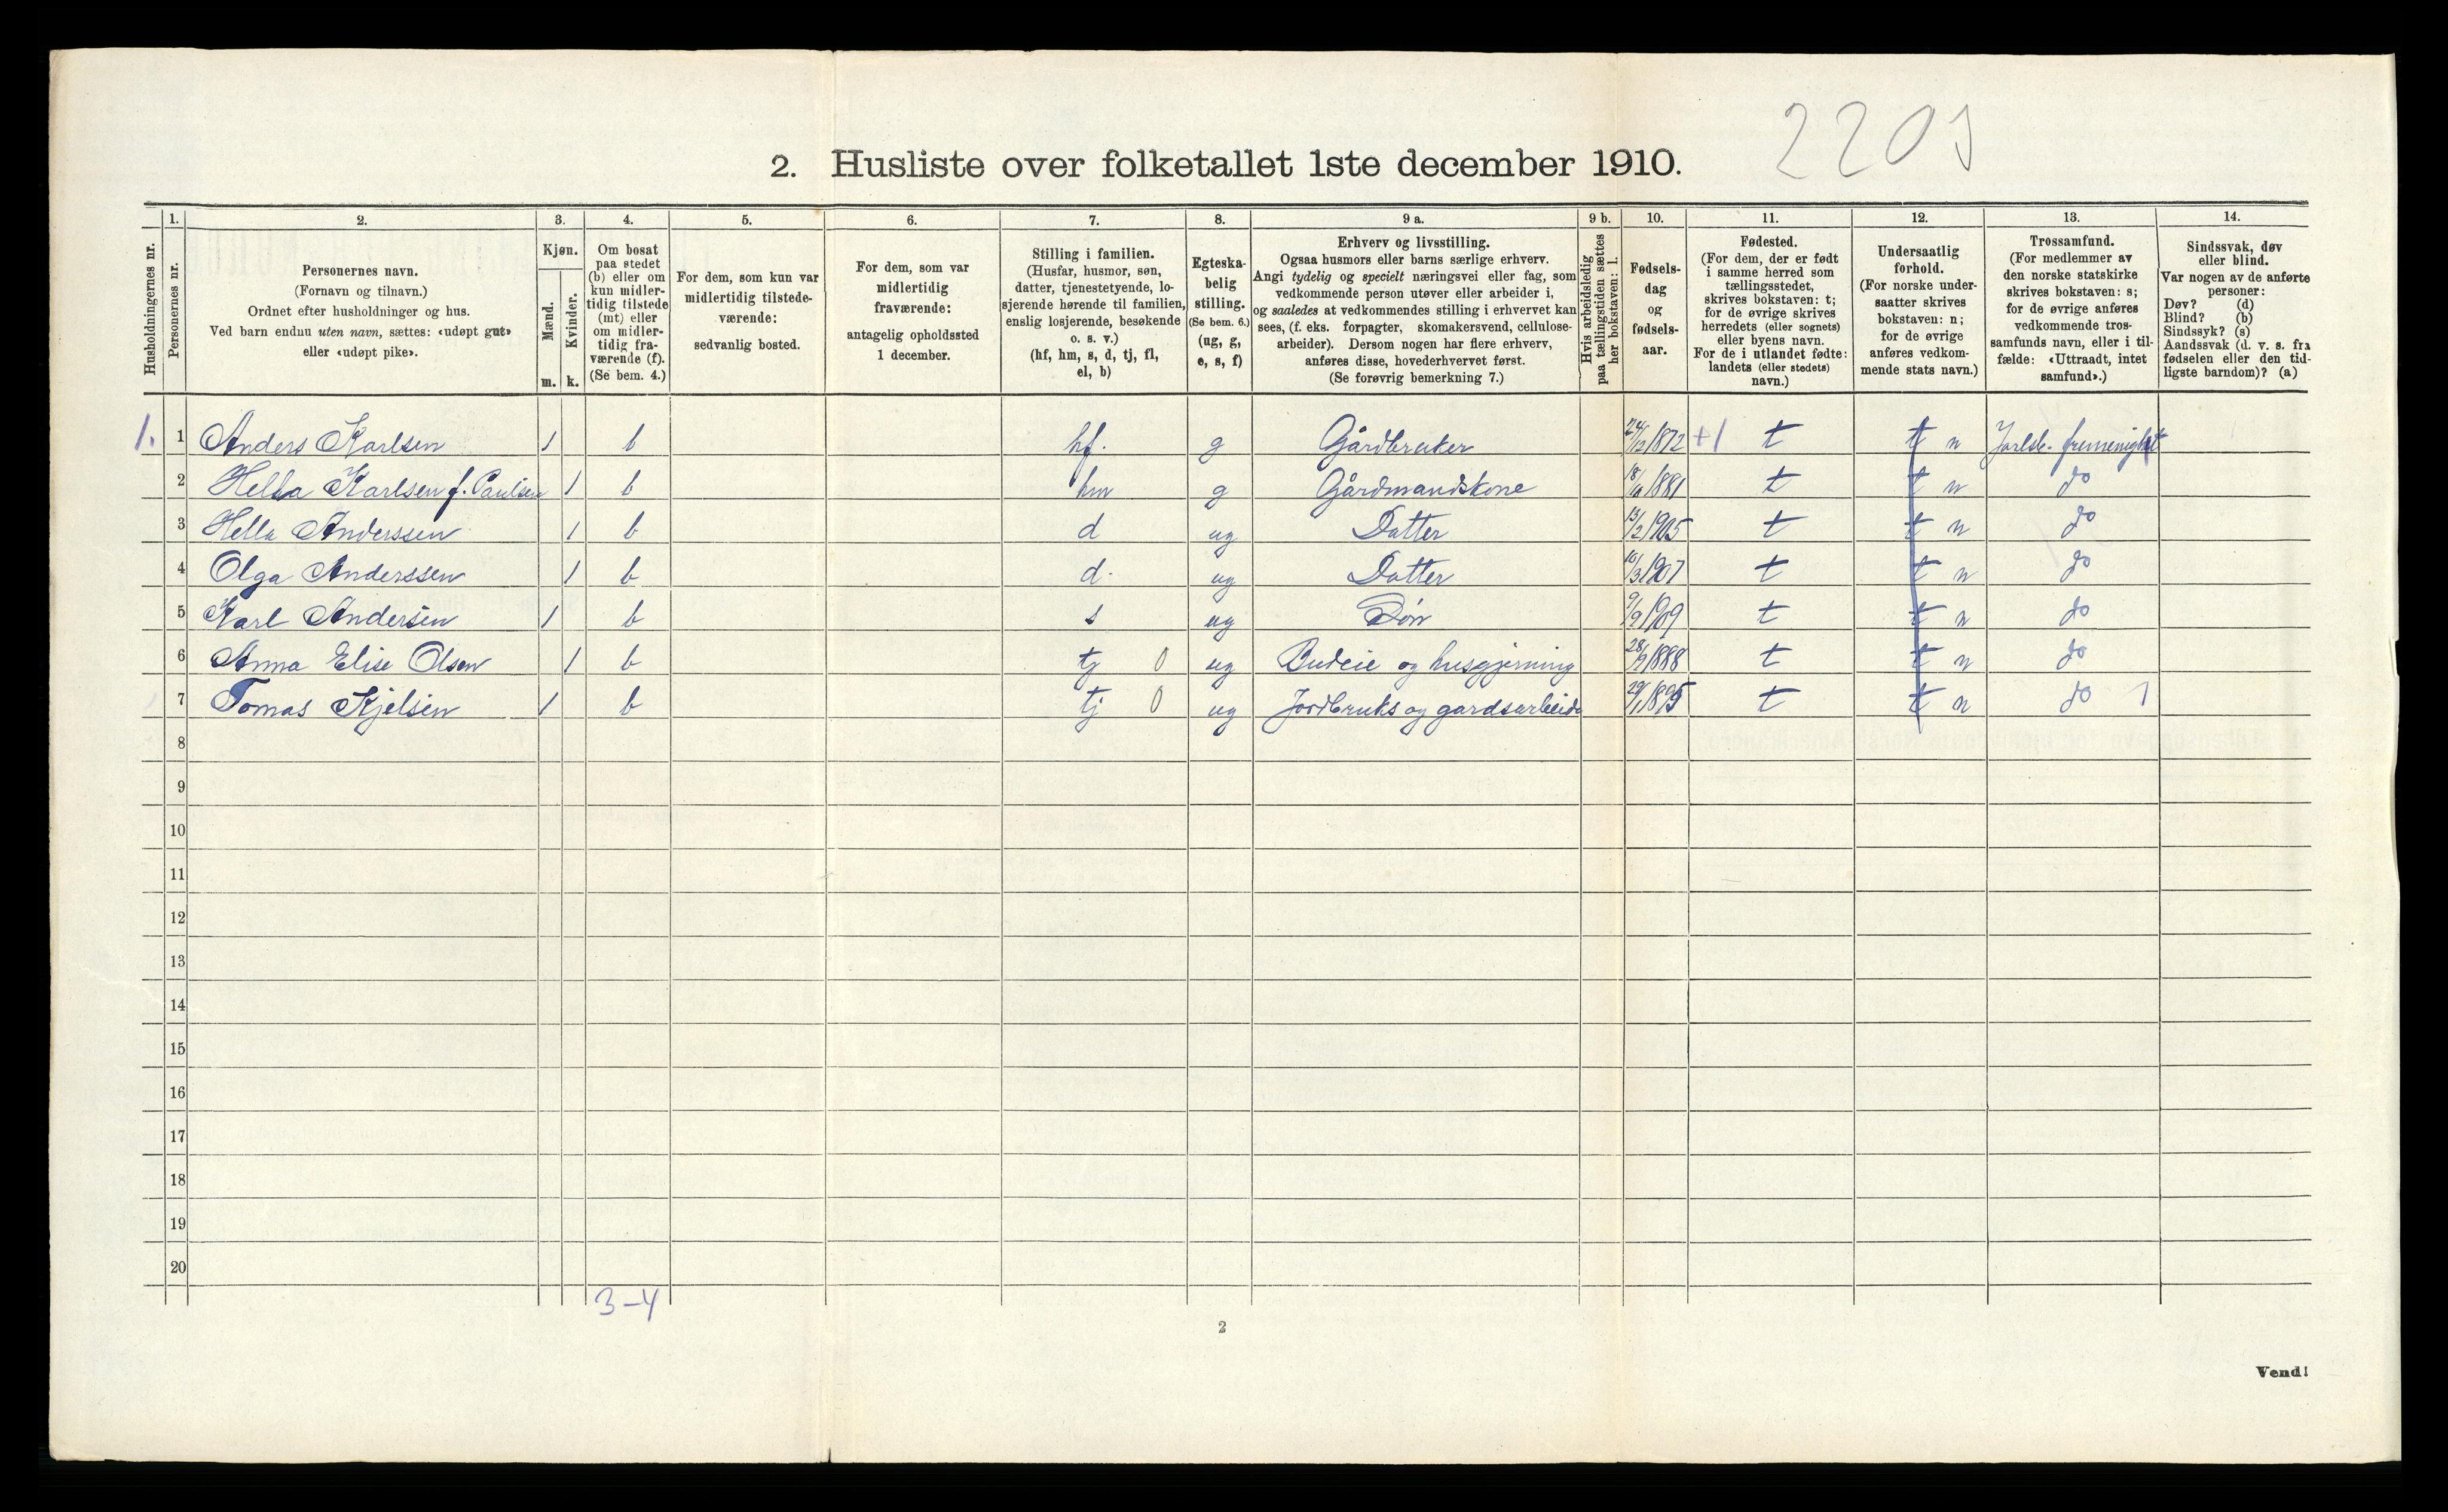 2203
2. Husliste over folketallet 1ste december 1910.
Husholdningernes nr.
1. Personernes nr.
2. Personernes navn.
(Fornavn og tilnavn.)
Ordnet efter husholdninger og hus.
Ved barn endnu uten navn, sættes: «udøpt gut»
eller «udøpt pike».
3. Kjøn.
Mænd. m.
Kvinder. k.
4. Om bosat
paa stedet
(b) eller om
kun midler-
tidig tilstede
(mt) eller
om midler-
tidig fra-
værende (f).
(Se bem. 4.)
5. For dem, som kun var
midlertidig tilstede-
værende:
sedvanlig bosted.
6. For dem, som var
midlertidig
fraværende:
antagelig opholdssted
1 december.
7. Stilling i familien.
(Husfar, husmor, søn,
datter, tjenestetyende, lo-
sjerende hørende til familien,
enslig losjerende, besøkende
o. s. v.)
(hf, hm, s, d, tj, fl,
el, b)
8. Egteska-
belig
stilling.
(Se bem. 6.)
(ug, g,
e, s, f)
9 a. Erhverv og livsstilling.
Ogsaa husmors eller barns særlige erhverv.
Angi tydelig og specielt næringsvei eller fag, som
vedkommende person utøver eller arbeider i,
og saaledes at vedkommendes stilling i erhvervet kan
sees, (f. eks. forpagter, skomakersvend, cellulose-
arbeider). Dersom nogen har flere erhverv,
anføres disse, hovederhvervet først.
(Se forøvrig bemerkning 7.)
9 b. Hvis arbeidsledig
paa tællingstiden sættes
her bokstaven: l.
10. Fødsels-
dag
og
fødsels-
aar.
11. Fødested.
(For dem, der er født
i samme herred som
tællingsstedet,
skrives bokstaven: t;
for de øvrige skrives
herredets (eller sognets)
eller byens navn.
For de i utlandet fødte:
landets (eller stedets)
navn.)
12. Undersaatlig
forhold.
(For norske under-
saatter skrives
bokstaven: n;
for de øvrige
anføres vedkom-
mende stats navn.)
13. Trossamfund.
(For medlemmer av
den norske statskirke
skrives bokstaven: s;
for de øvrige anføres
vedkommende tros-
samfunds navn, eller i til-
fælde: «Uttraadt, intet
samfund».)
14. Sindssvak, døv
eller blind.
Var nogen av de anførte
personer:
Døv? (d)
Blind? (b)
Sindssyk? (s)
Aandssvak (d. v. s. fra
fødselen eller den tid-
ligste barndom)? (a)
1. 1 Anders Karlsen 1 b hf. g Gårdbruker 24/12 1872 +1 t t n Jarlsb. frimenighet
2 Hella Karlsen f. Paulsen 1 b hm g Gårdmandskone 1881 t t n do
3 Hella Anderssen 1 b d ug Datter 13/2 1905 t t n do
4 Olga Anderssen 1 b d. ug Datter 10/3 1907 t t n do
5 Karl Andersen 1 b s ug Søn 9/9 1909 t t n do
6 Anna Elise Olsen 1 b tj 0 ug Budeie og husgjerning 28/9 1888 t t n do
7 Tomas Kjelsen 1 b tj 0 ug Jordbruks og gardsarbeide 29/1 1895 t t n do 1
8
9
10
11
12
13
14
15
16
17
18
19
20
3-4
2
Vend!